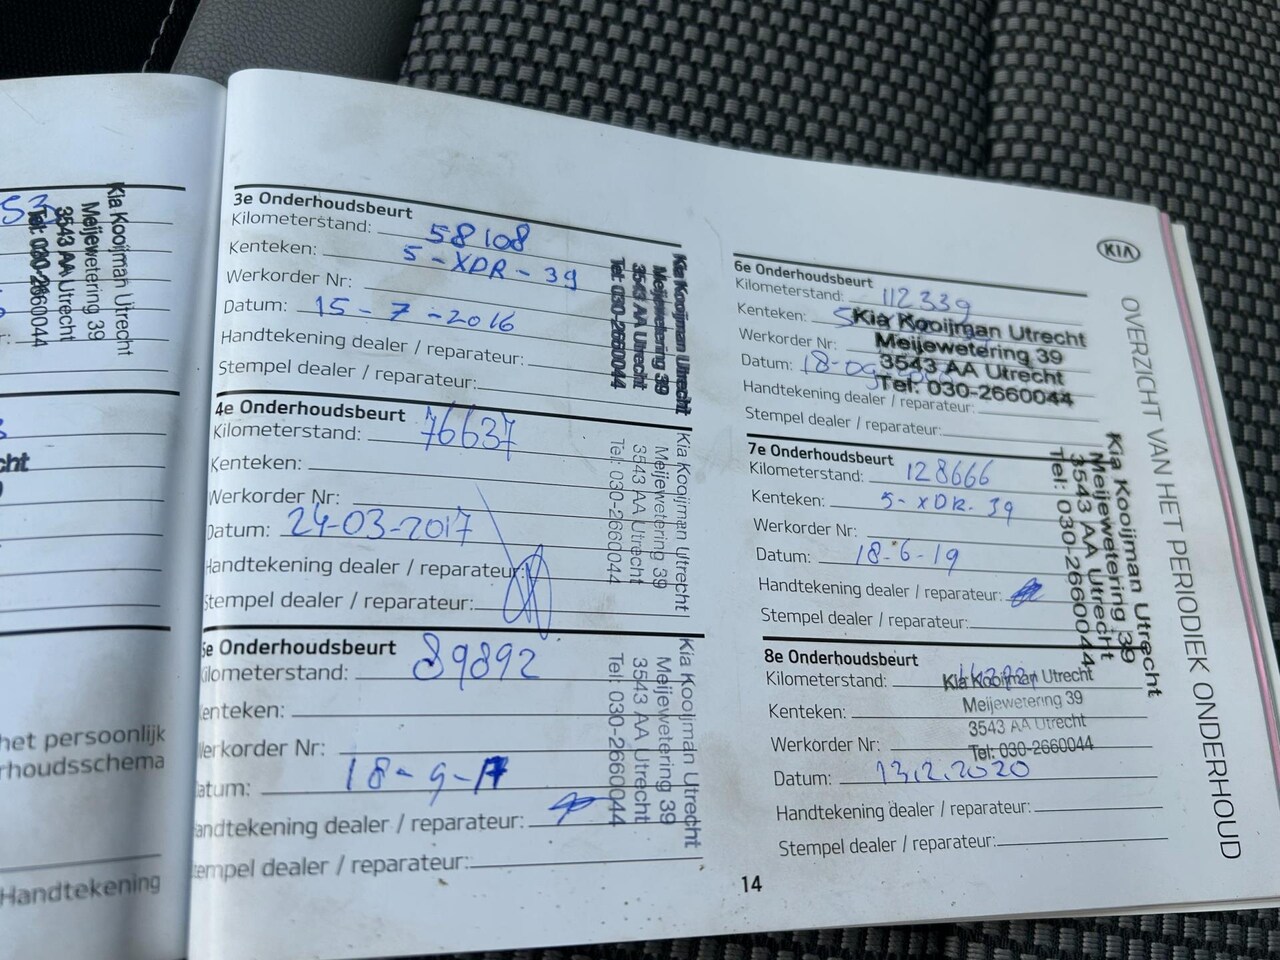 Kia Kooijman Utrecht
Meijewetering 39
3543 AA Utrecht
Tel: 030-2660044
het persoonlijk
rhoudsschema
Handtekening
3e Onderhoudsbeurt
Kilometerstand: 58108
Kenteken: 5-XDR-39
Werkorder Nr:
Datum: 15-7-2016
Handtekening dealer / reparateur:
Stempel dealer / reparateur:
Kia Kooijman Utrecht
Meijewetering 39
3543 AA Utrecht
Tel: 030-2660044
4e Onderhoudsbeurt
Kilometerstand: 76637
Kenteken:
Werkorder Nr:
Datum: 24-03-2017
Handtekening dealer / reparateur:
Stempel dealer / reparateur:
Kia Kooijman Utrecht
Meijewetering 39
3543 AA Utrecht
Tel: 030-2660044
5e Onderhoudsbeurt
Kilometerstand: 89892
Kenteken:
Werkorder Nr:
Datum: 18-9-17
Handtekening dealer / reparateur:
Stempel dealer / reparateur:
Kia Kooijman Utrecht
Meijewetering 39
3543 AA Utrecht
Tel: 030-2660044
KIA
OVERZICHT VAN HET PERIODIEK ONDERHOUD
6e Onderhoudsbeurt
Kilometerstand: 112339
Kenteken:
Werkorder Nr:
Datum: 18-09
Handtekening dealer / reparateur:
Stempel dealer / reparateur:
Kia Kooijman Utrecht
Meijewetering 39
3543 AA Utrecht
Tel: 030-2660044
7e Onderhoudsbeurt
Kilometerstand: 128666
Kenteken: 5-XDR-39
Werkorder Nr:
Datum: 18-6-19
Handtekening dealer / reparateur:
Stempel dealer / reparateur:
Kia Kooijman Utrecht
Meijewetering 39
3543 AA Utrecht
Tel: 030-2660044
8e Onderhoudsbeurt
Kilometerstand:
Kenteken:
Werkorder Nr:
Datum: 13.2.2020
Handtekening dealer / reparateur:
Stempel dealer / reparateur:
Kia Kooijman Utrecht
Meijewetering 39
3543 AA Utrecht
Tel: 030-2660044
14